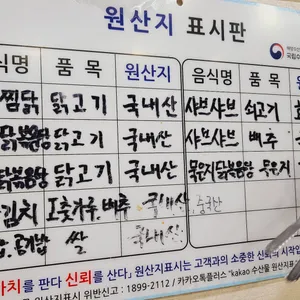 원산지 표시판
식명 품 목 원산지 음식명 품 목
찜닭 닭고기 국내산 샤브샤브 쇠고기
닭볶음탕 닭고기 국내산 샤브샤브 배추
닭볶음탕 닭고기 국내산 묵은지닭볶음탕 묵은지
김치 고춧가루, 배추 국내산 중국산
공기밥 쌀 국내산
가치를 판다 신뢰를 산다" 원산지표시는 고객과의 소중한 신뢰의 시작입
원산지표시 위반신고 : 1899-2112 / 카카오톡플러스 "kakao 수산물 원산지표시